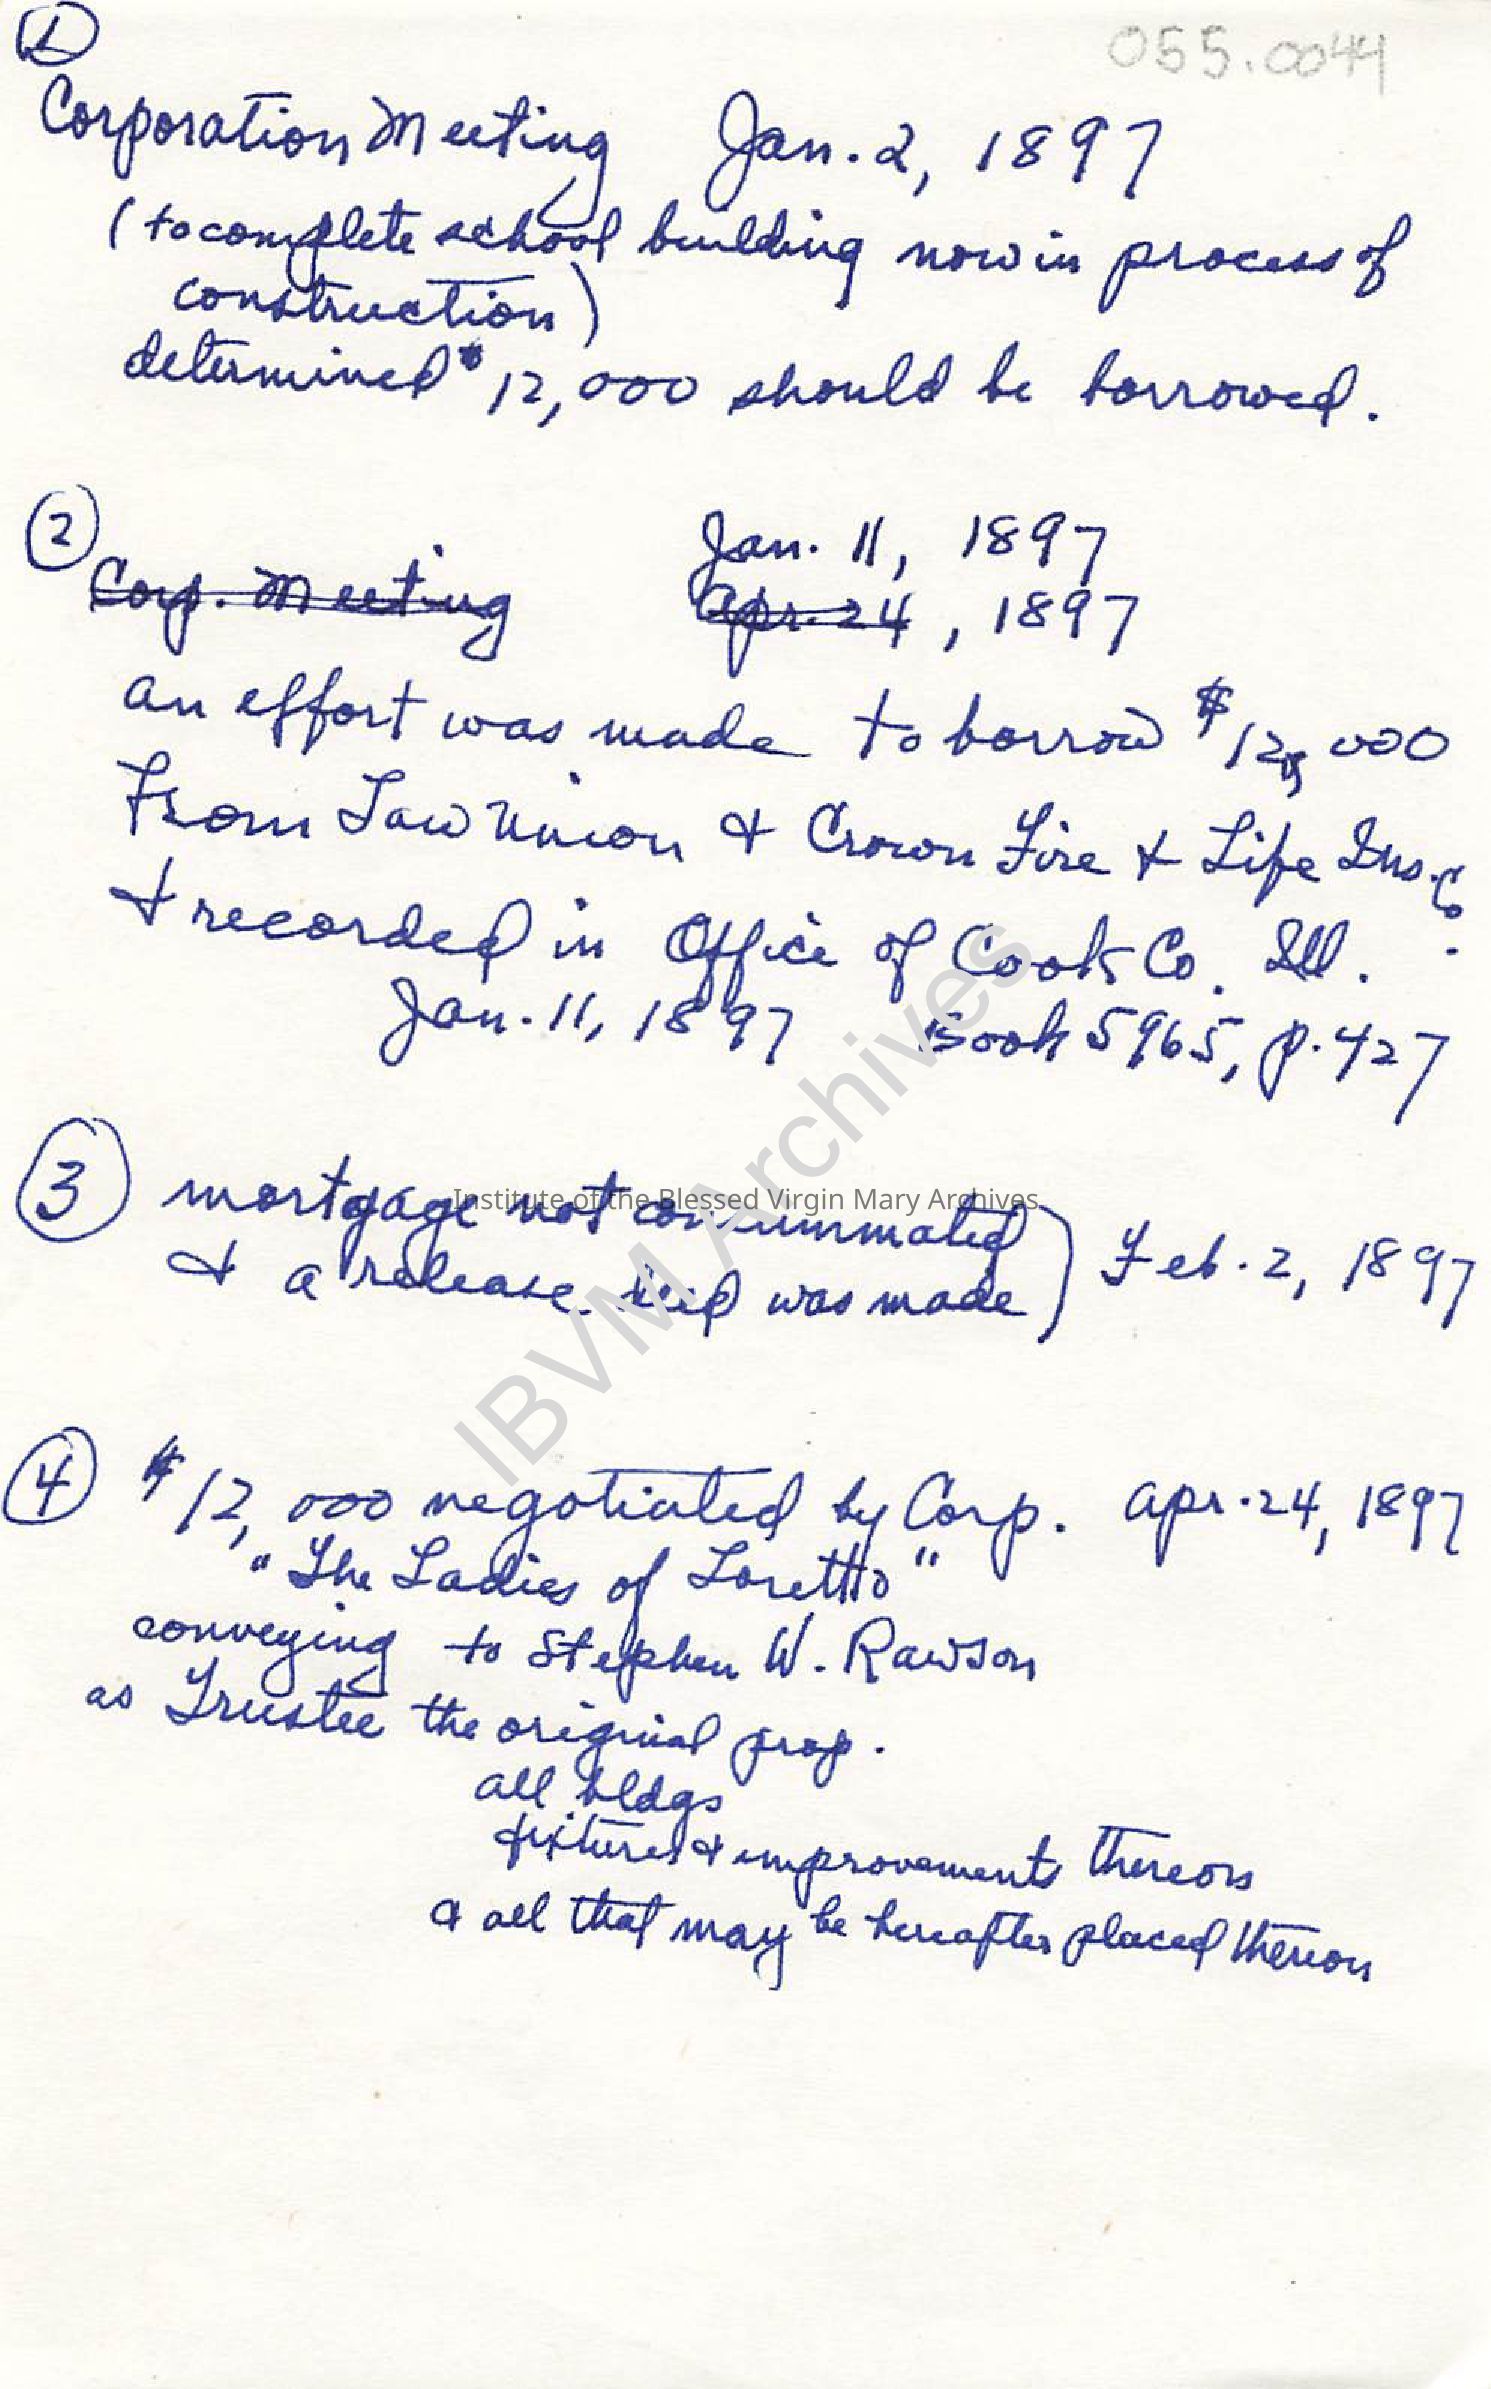 055.0044
①
Corporation Meeting Jan. 2, 1897
(to complete school building now in process of
construction)
determined $12,000 should be borrowed.
②
Jan. 11, 1897
Corp. Meeting Apr. 24, 1897
an effort was made to borrow $12,000
From Law Union & Crown Fire & Life Ins. Co.
& recorded in Office of Cook Co. Ill.
Jan. 11, 1897 Book 5965, p. 427
③ mortgage not consummated
& a release deed was made) Feb. 2, 1897
④ $12,000 negotiated by Corp. Apr. 24, 1897
"The Ladies of Loretto"
conveying to Stephen W. Rawson
as Trustee the original prop.
all bldgs
fixtures & improvements thereon
& all that may be hereafter placed thereon
Institute of the Blessed Virgin Mary Archives
IBVM Archives